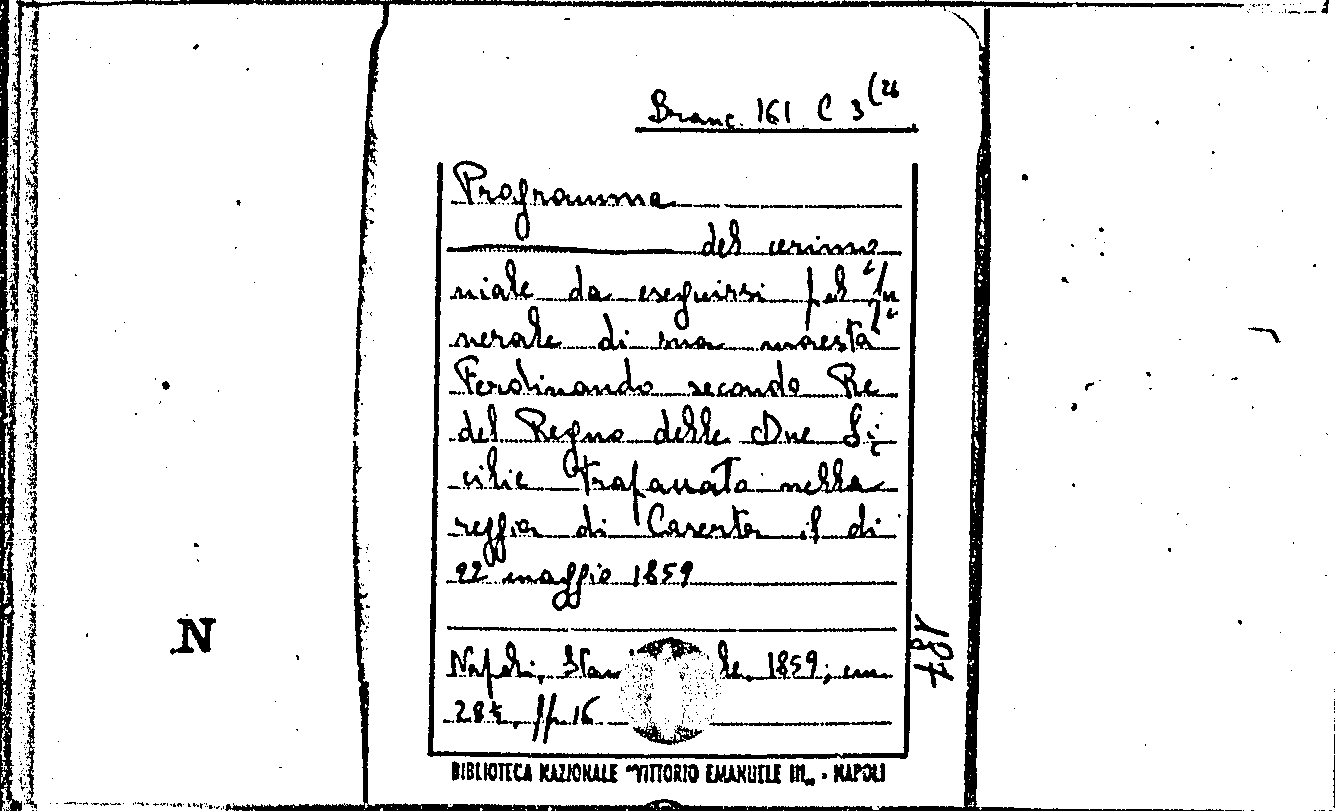 Branc. 161 C 3 (26
Programma
del cerimo
niale da eseguirsi pel fu
nerale di sua maestà
Ferdinando secondo Re
del Regno delle Due Si
cilie trapassato nella
reggia di Caserta il di
22 maggio 1859
Napoli, 1859; cm
28½. pp. 16
187
N
BIBLIOTECA NAZIONALE "VITTORIO EMANUELE III„ - NAPOLI